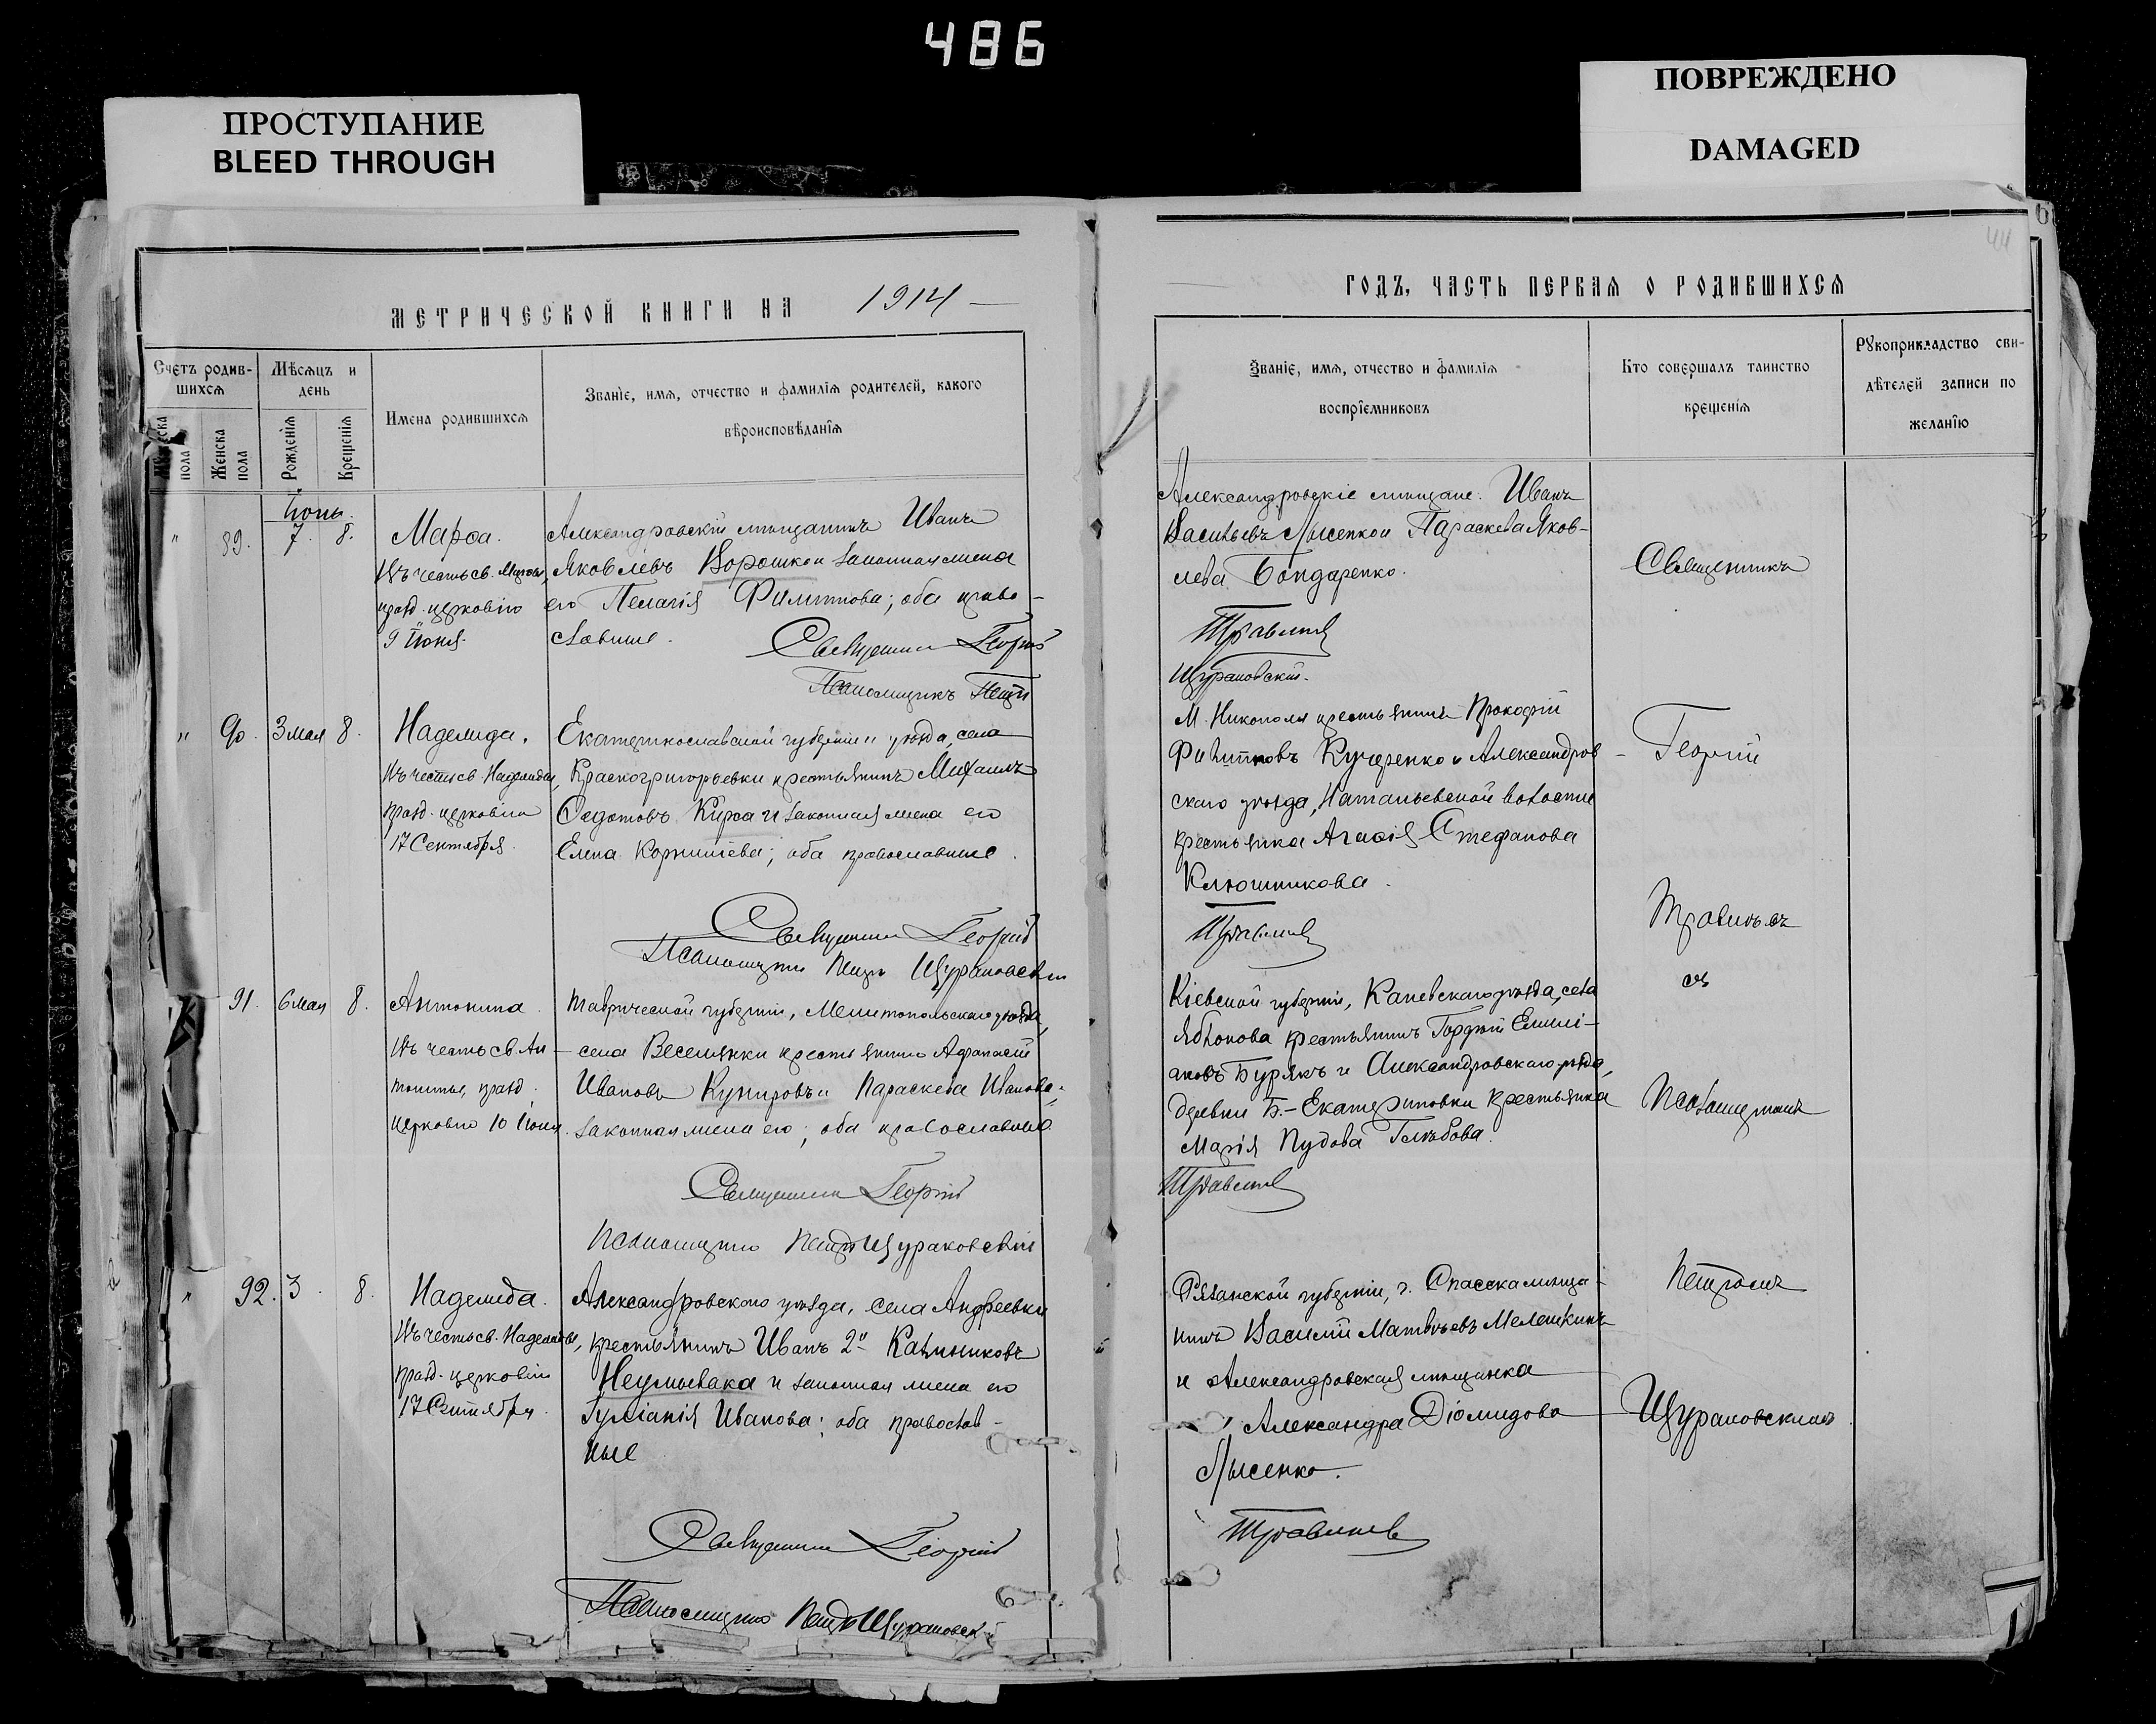 486
ПРОСТУПАНИЕ
BLEED THROUGH
ПОВРЕЖДЕНО
DAMAGED
МЕТРИЧЕСКОЙ КНИГИ НА 1914
Счетъ родив-
шихся
Мѣсяцъ и
день
Имена родившихся
Званіе, имя, отчество и фамилія родителей, какого
вѣроисповѣданія
пола
Женска
пола
Рожденія
Крещенія
Іюнь.
" 89. 7. 8.
Марѳа.
Въ честь св. Марѳы,
празд. церковію
9 Іюня.
Александровскій мѣщанинъ Иванъ
Яковлевъ Ворошко и законная жена
его Пелагія Филиппова; оба право-
славные.
Священникъ Георгій
Псаломщикъ Петръ
" 90. 3 мая 8.
Надежда.
Въ честь св. Надежды,
празд. церковію
17 Сентября.
Екатеринославской губерніи и уѣзда, села
Красногригорьевки крестьянинъ Михаилъ
Ѳедотовъ Кирса и законная жена его
Елена Корнилiева; оба православные.
Священникъ Георгій
Псаломщикъ Петръ Щурановскій
91. 6 мая 8.
Антонина.
Въ честь св. Ан-
тонины, празд.
церковію 10 Іюня.
Таврической губерніи, Мелитопольскаго уѣзда,
села Веселянки крестьянинъ Афанасій
Ивановъ Кунировъ и Параскева Иванова,
законная жена его; оба православные.
Священникъ Георгій
Псаломщикъ Петръ Щурановскій
" 92. 3. 8.
Надежда.
Въ честь св. Надежды,
празд. церковію
17 Сентября.
Александровского уѣзда, села Андреевки
крестьянинъ Иванъ 2й Калиниковъ
Неумывака и законная жена его
Іуліанія Иванова; оба православ-
ные
Священникъ Георгій
Псаломщикъ Петръ Щурановскій
44
ГОДЪ, ЧАСТЬ ПЕРВАЯ О РОДИВШИХСЯ
Званіе, имя, отчество и фамилія
воспріемниковъ
Кто совершалъ таинство
крещенія
Рукоприкладство сви-
дѣтелей записи по
желанію
Александровскіе мѣщане: Иванъ
Васильевъ Лысенко и Параскева Яков-
лева Бондаренко.
Травинъ
Щурановскій.
М. Никополя крестьянинъ Прокофій
Филипповъ Кучеренко и Александров-
скаго уѣзда, Натальевской волости
крестьянка Агафія Стефанова
Ключникова.
Кіевской губерніи, Каневскаго уѣзда, села
Яблонова крестьянинъ Гордій Емилі-
ановъ Бурякъ и Александровскаго уѣзда,
деревни Б.-Екатериновки крестьянка
Марія Пудова Голубова.
Рязанской губерніи, г. Спасска мѣща-
нинъ Василій Матвѣевъ Мелешкинъ
и Александровская мѣщанка
Александра Діомидова
Лысенко.
Священникъ
Георгій
съ
Псаломщикомъ
Петромъ
Щурановскимъ